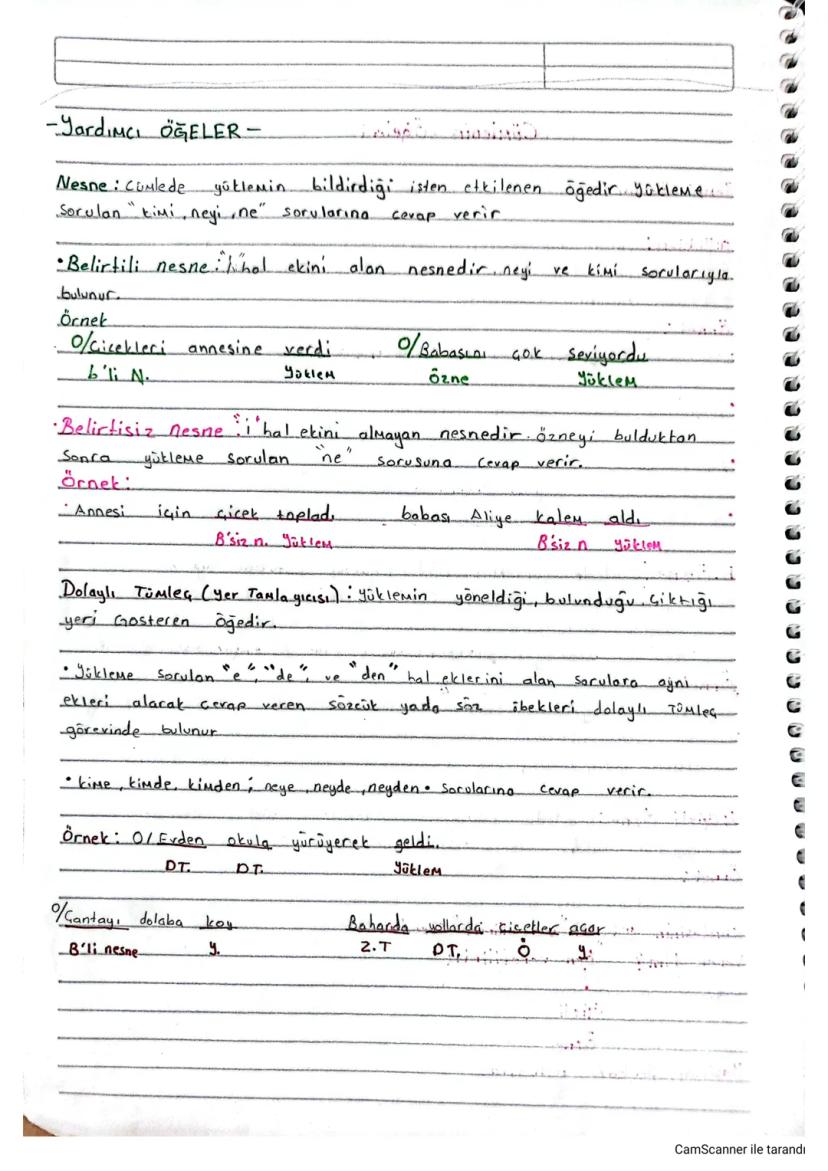 -Yardımcı ÖĞELER-
Nesne: Cümlede yüklemin bildirdiği işten etkilenen öğedir. Yükleme
Sorulan "kimi, neyi, ne" sorularına cevap verir
•Belirtili nesne: "i" hal ekini alan nesnedir. neyi ve kimi sorularıyla
bulunur.
Örnek
O/Çiçekleri annesine verdi O/Babasını çok seviyordu
b'li N. Yüklem Özne Yüklem
•Belirtisiz nesne: "i" hal ekini almayan nesnedir. özneyi bulduktan
Sonra yükleme sorulan "ne" sorusuna cevap verir.
Örnek:
Annesi için çiçek topladı babası Aliye kalem aldı
B'siz n. Yüklem B'siz n Yüklem
Dolaylı Tümleç (Yer Tamlayıcısı): Yüklemin yöneldiği, bulunduğu, çıktığı
yeri Gösteren öğedir.
• Yükleme sorulan "e", "de", ve "den" hal eklerini alan sorulara aynı
ekleri alarak cevap veren sözcük yada söz öbekleri dolaylı Tümleç
görevinde bulunur
• kime, kimde, kimden; neye, neyde, neyden • Sorularına cevap verir.
Örnek: O/Evden okula yürüyerek geldi.
DT. DT. Yüklem
O/Çantayı dolaba koy Baharda yollarda çiçekler açar
B'li nesne y. Z.T DT. Ö y.
CamScanner ile tarandı